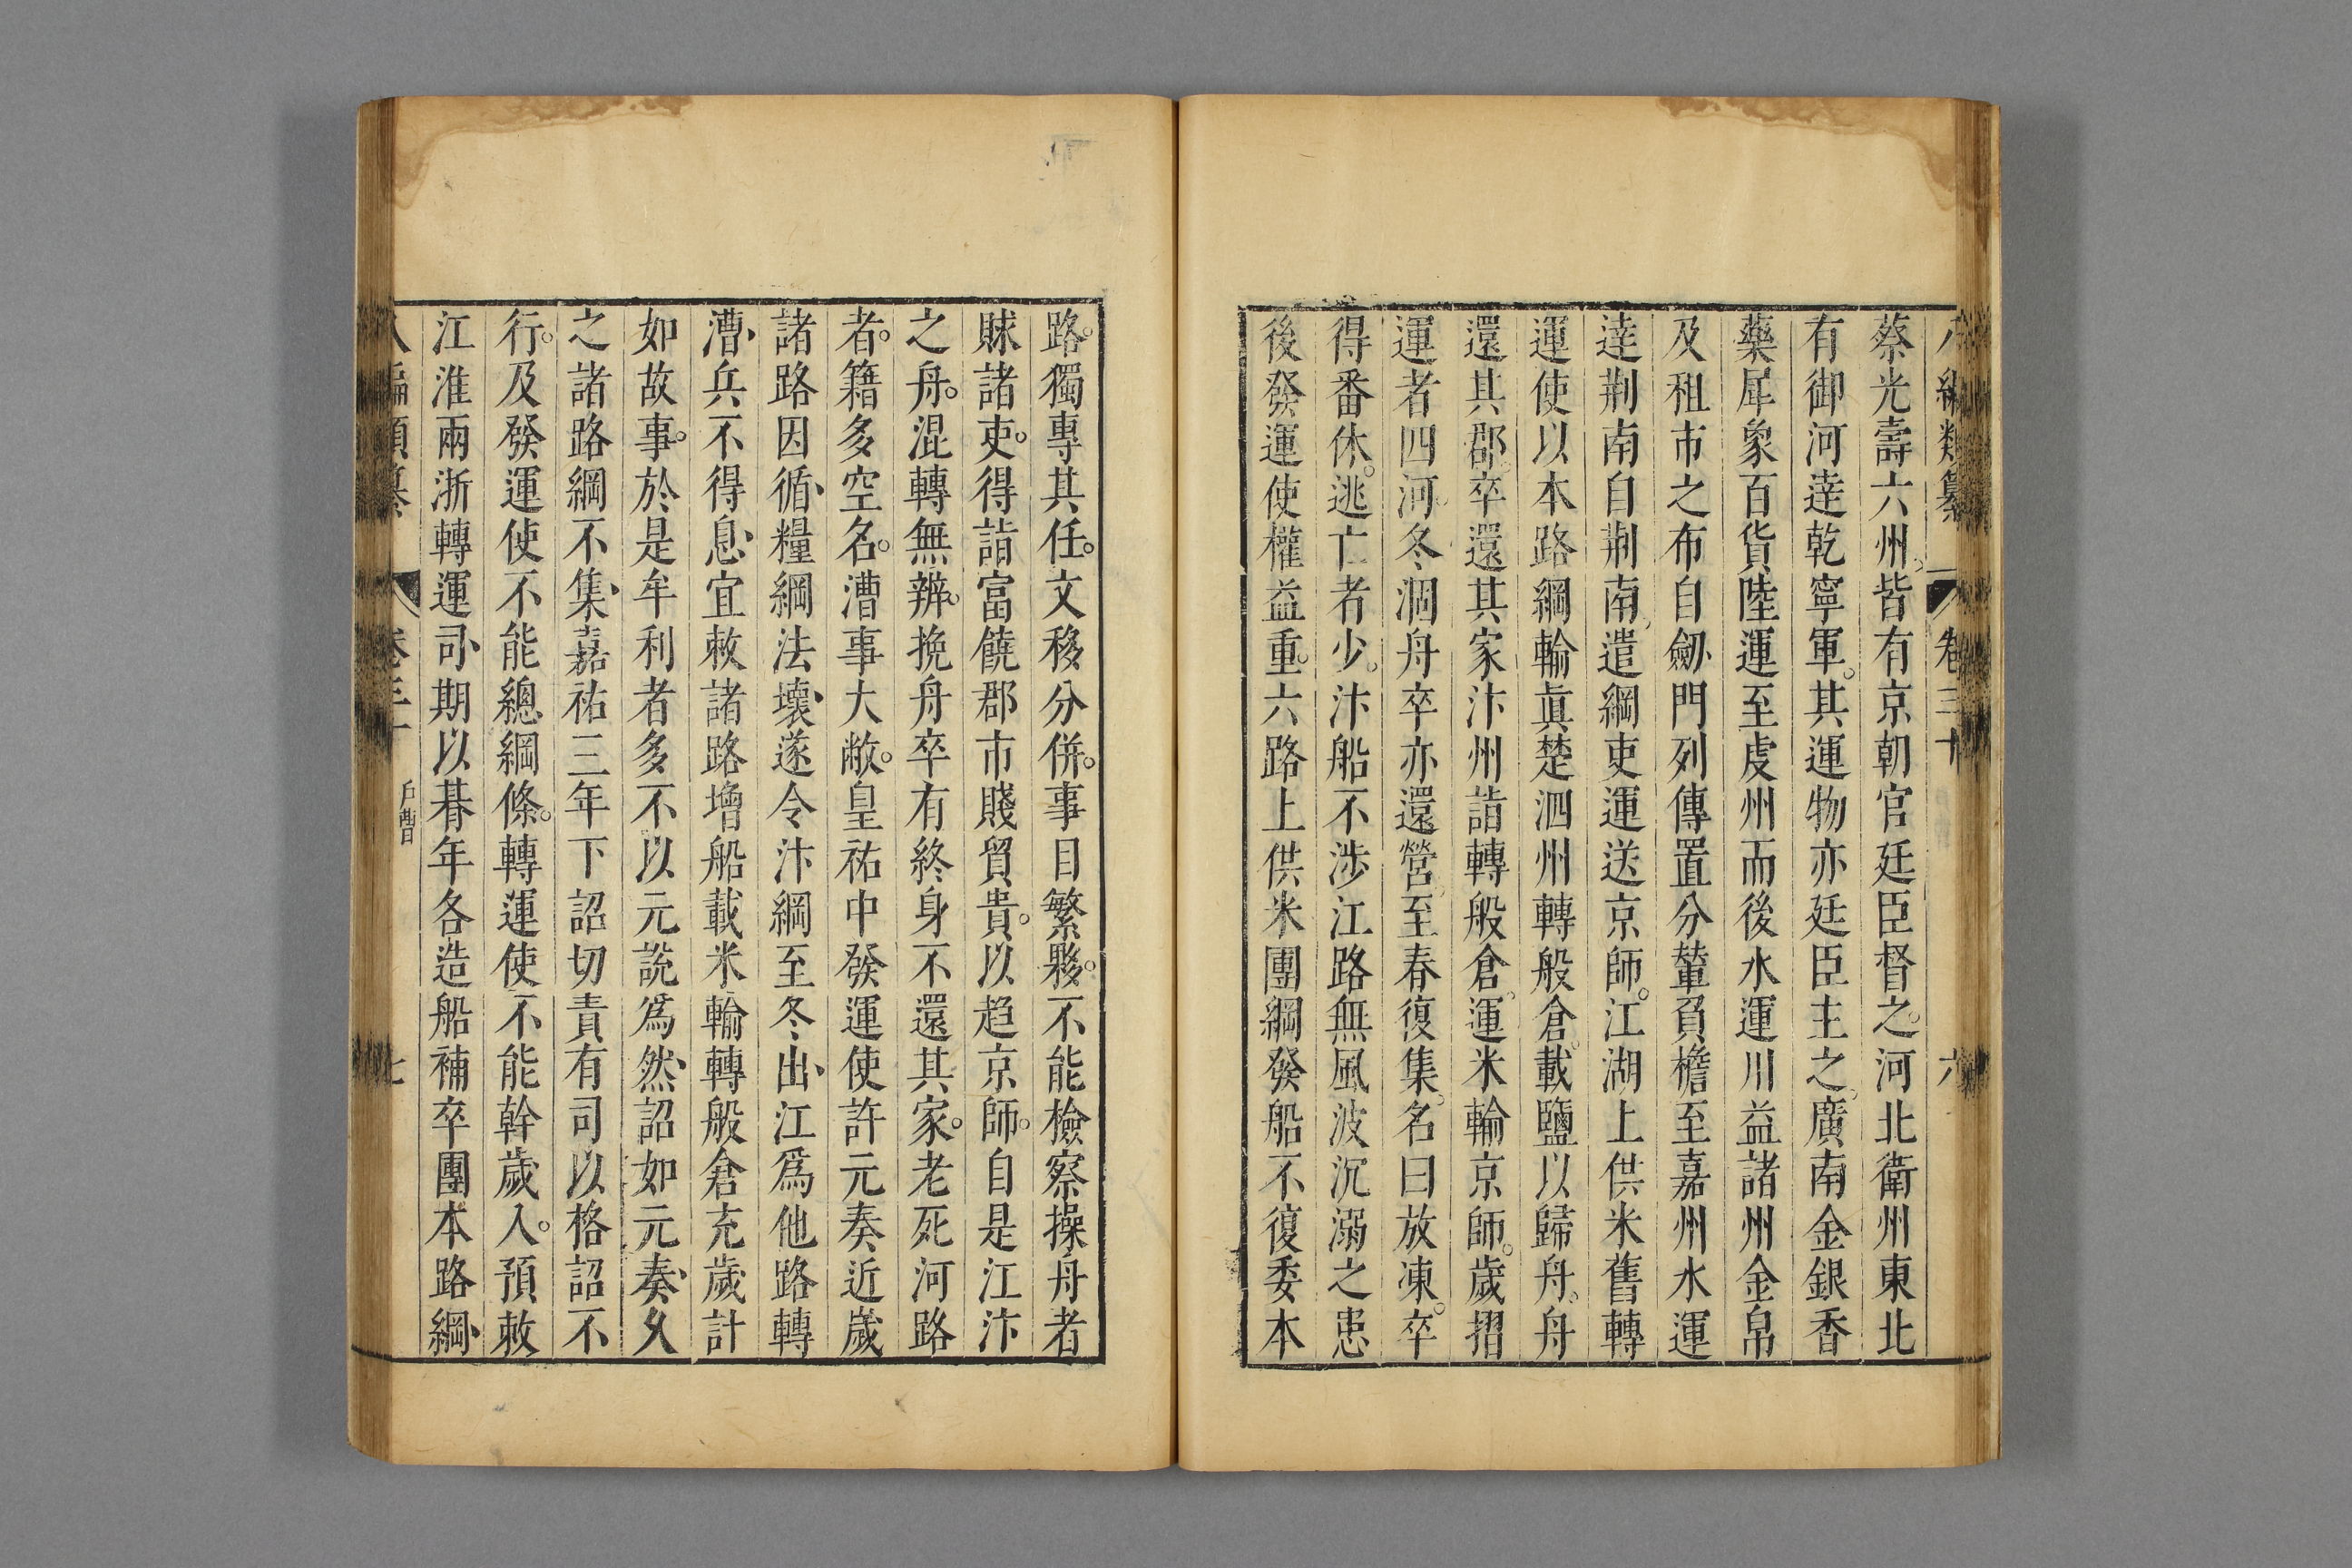 八編類纂 卷三十 六
蔡光壽六州皆有京朝官廷臣督之河北衛州東北
有御河達乾寧軍其運物亦廷臣主之廣南金銀香
藥犀象百貨陸運至虔州而後水運川益諸州金帛
及租市之布自劒門列傳置分輦負檐至嘉州水運
達荆南自荆南遣綱吏運送京師江湖上供米舊轉
運使以本路綱輸眞楚泗州轉般倉載鹽以歸舟舟
還其郡卒還其家汴州詣轉般倉運米輸京師歲摺
運者四河冬涸舟卒亦還營至春復集名曰放凍卒
得番休逃亡者少汴船不涉江路無風波沉溺之患
後發運使權益重六路上供米團綱發船不復委本
路獨專其任文移分併事目繁夥不能檢察操舟者
賕諸吏得詣富饒郡市賤貿貴以趋京師自是江汴
之舟混轉無辨挽舟卒有終身不還其家老死河路
者籍多空名漕事大敝皇祐中發運使許元奏近歲
諸路因循糧綱法壞遂令汴綱至冬出江爲他路轉
漕兵不得息宜敕諸路增船載米輸轉般倉充歲計
如故事於是牟利者多不以元說爲然詔如元奏久
之諸路綱不集嘉祐三年下詔切責有司以格詔不
行及發運使不能總綱條轉運使不能幹歲入預敕
江淮兩浙轉運司期以朞年各造船補卒團本路綱
八編類纂 卷三十 戶曹 七